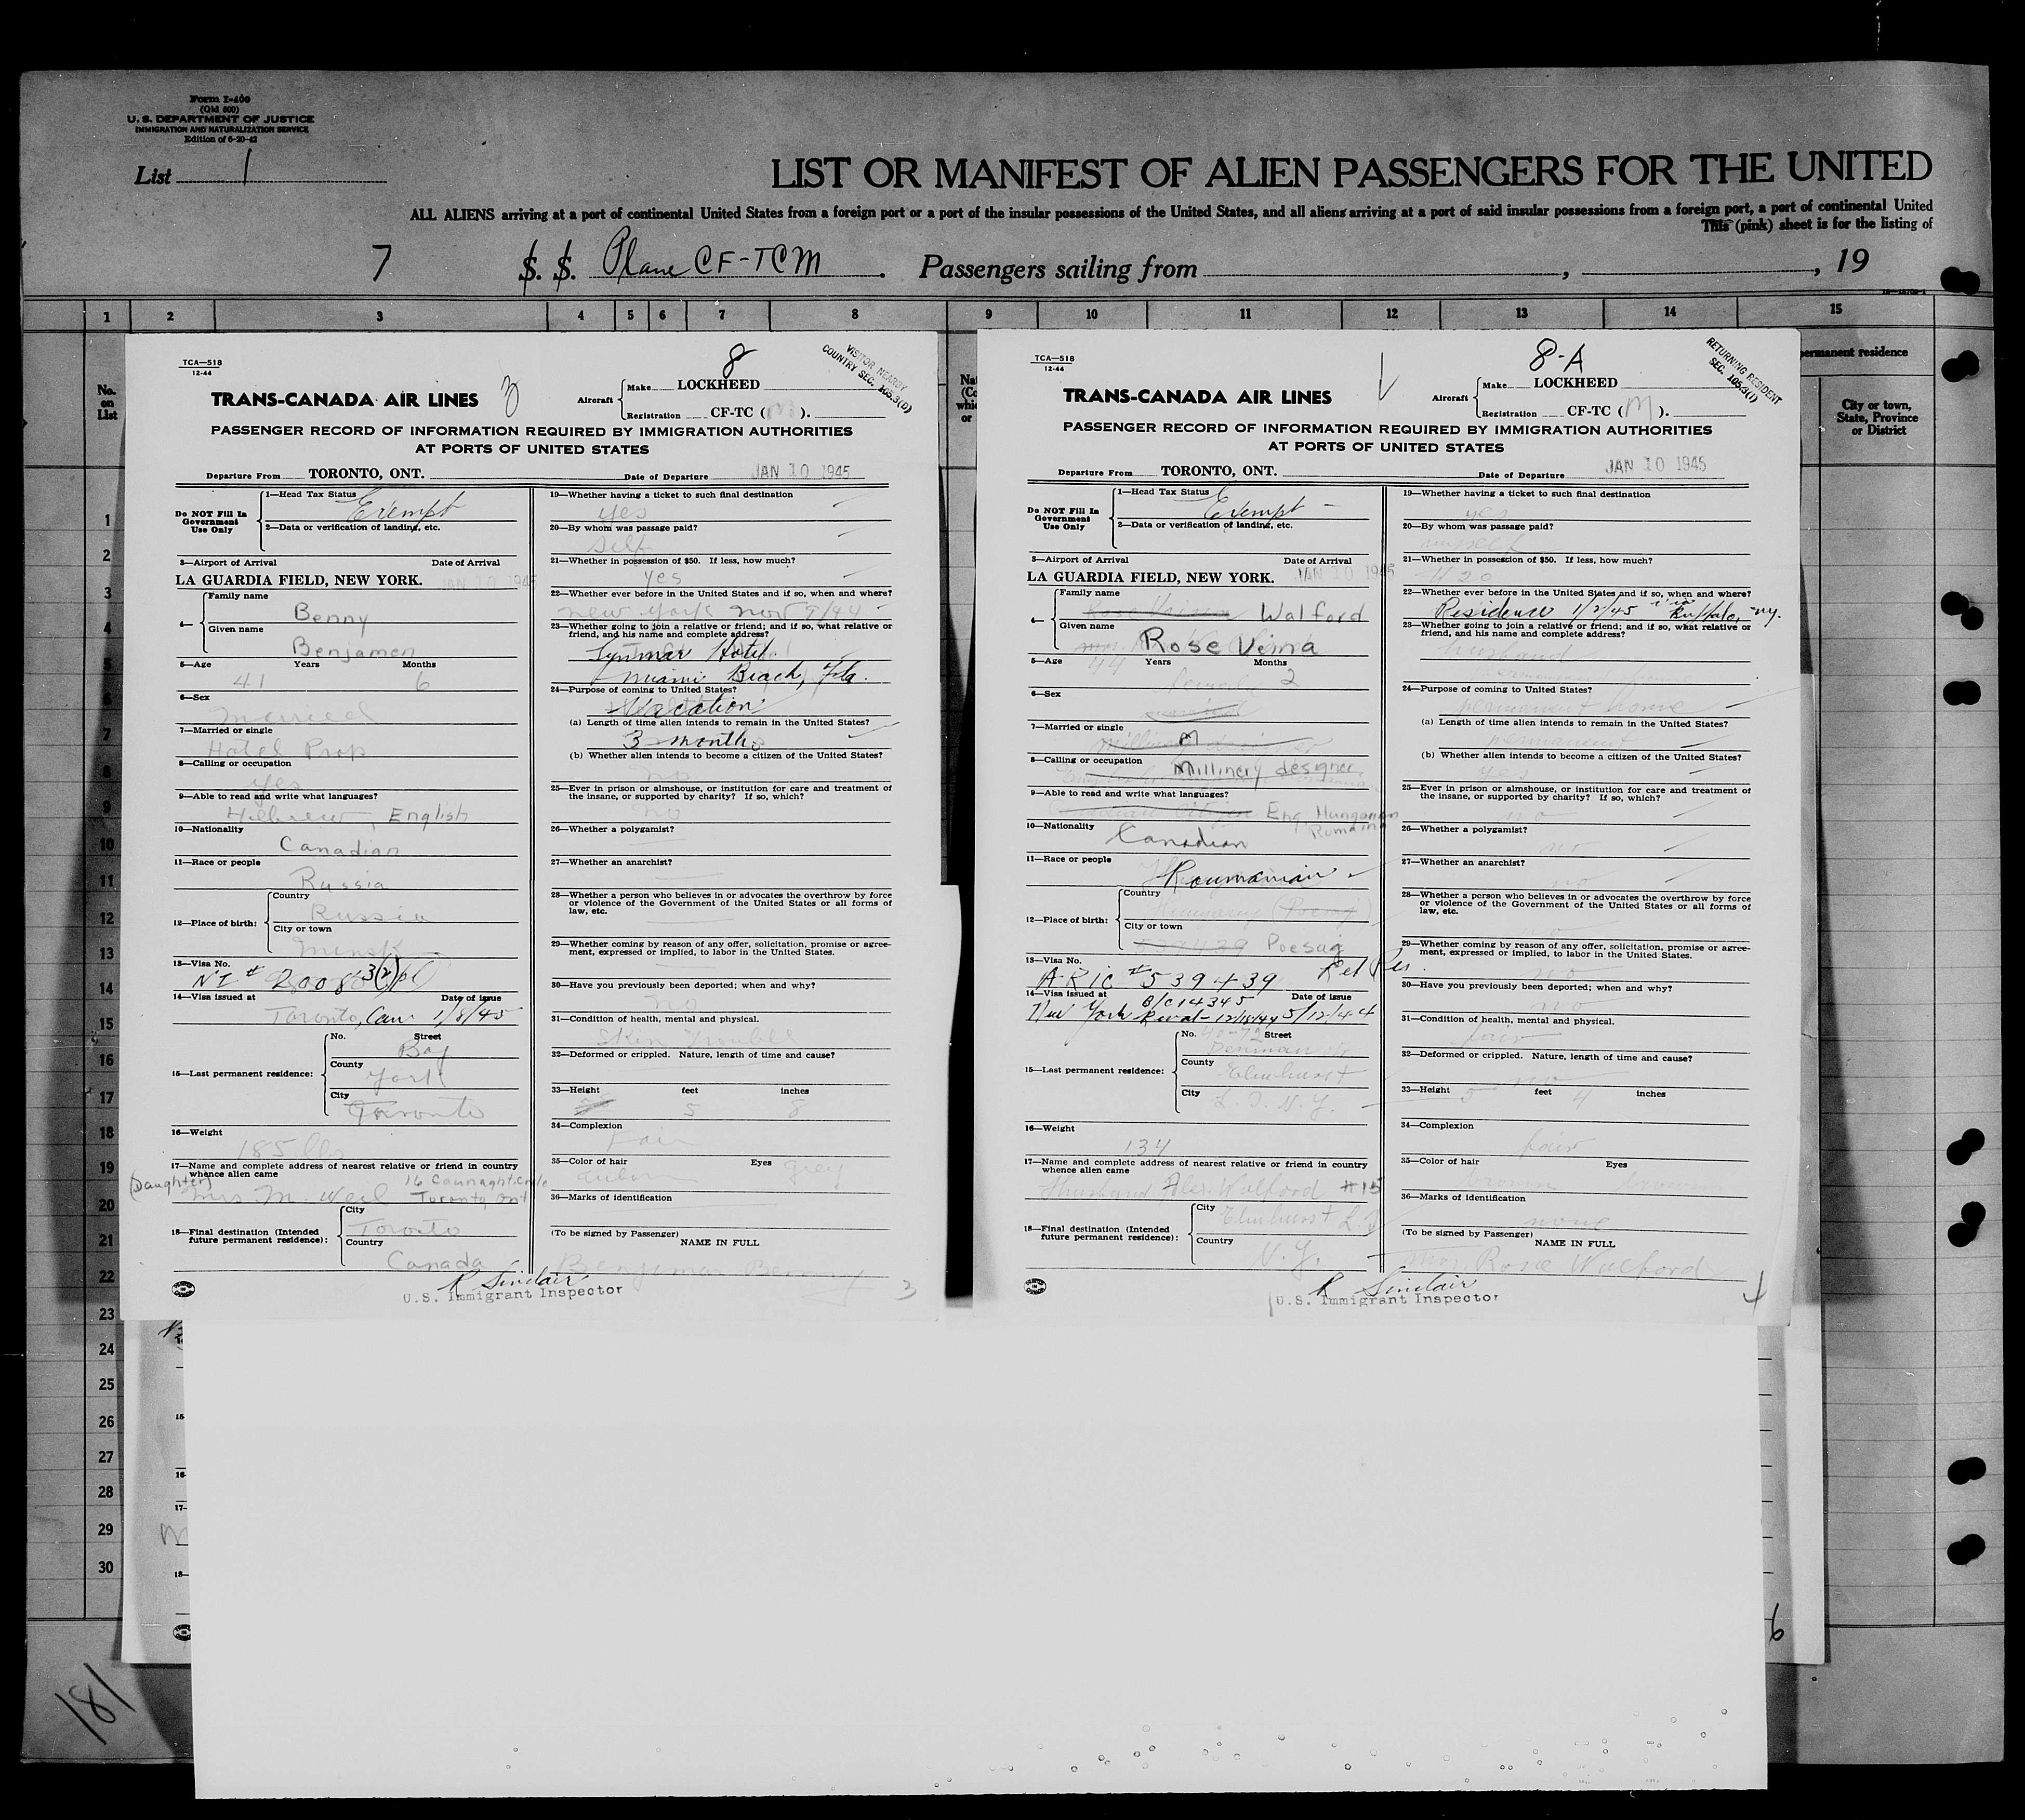 Form I-400
(Old 500)
U. S. DEPARTMENT OF JUSTICE
IMMIGRATION AND NATURALIZATION SERVICE
Edition of 6-20-42
List 1
LIST OR MANIFEST OF ALIEN PASSENGERS FOR THE UNITED
ALL ALIENS arriving at a port of continental United States from a foreign port or a port of the insular possessions of the United States, and all aliens arriving at a port of said insular possessions from a foreign port, a port of continental United
This (pink) sheet is for the listing of
7 S. S. Plane CF-TCM . Passengers sailing from , , 19
1 2 3 4 5 6 7 8 9 10 11 12 13 14 15
No.
on
List
permanent residence
City or town,
State, Province
or District
1
2
3
4
5
6
7
8
9
10
11
12
13
14
15
16
17
18
19
20
21
22
23
24
25
26
27
28
29
30
181
TCA—518
12-44
8
VISITOR NEARBY
COUNTRY SEC. 105.3(D)
TRANS-CANADA AIR LINES 3
Aircraft
Make LOCKHEED
Registration CF-TC (M).
PASSENGER RECORD OF INFORMATION REQUIRED BY IMMIGRATION AUTHORITIES
AT PORTS OF UNITED STATES
Departure From TORONTO, ONT. Date of Departure JAN 10 1945
Do NOT Fill In
Government
Use Only
1—Head Tax Status Exempt
2—Data or verification of landing, etc.
3—Airport of Arrival Date of Arrival
LA GUARDIA FIELD, NEW YORK. JAN 10 1945
4—
Family name
Benny
Given name
Benjamen
5—Age Years Months
41 6
6—Sex
Married
7—Married or single
Hotel Prop
8—Calling or occupation
Yes
9—Able to read and write what languages?
Hebrew, English
10—Nationality
Canadian
11—Race or people
Russia
12—Place of birth:
Country
Russia
City or town
Minsk
13—Visa No.
NI # 20083(2)
14—Visa issued at Date of issue
Toronto, Can 1/8/45
15—Last permanent residence:
No. Street
Bay
County
York
City
Toronto
16—Weight
185 lbs
17—Name and complete address of nearest relative or friend in country
whence alien came
(Daughter) Mrs M. Weil 16 Connaught Circle
Toronto, Ont
18—Final destination (Intended
future permanent residence):
City
Toronto
Country
Canada
R Sinclair
U.S. Immigrant Inspector
19—Whether having a ticket to such final destination
yes
20—By whom was passage paid?
Self
21—Whether in possession of $50. If less, how much?
Yes
22—Whether ever before in the United States and if so, when and where?
New York Nov 8/44
23—Whether going to join a relative or friend; and if so, what relative or
friend, and his name and complete address?
Lynmar Hotel
Miami Beach, Fla.
24—Purpose of coming to United States?
Vacation
(a) Length of time alien intends to remain in the United States?
3 months
(b) Whether alien intends to become a citizen of the United States?
No
25—Ever in prison or almshouse, or institution for care and treatment of
the insane, or supported by charity? If so, which?
No
26—Whether a polygamist?
27—Whether an anarchist?
28—Whether a person who believes in or advocates the overthrow by force
or violence of the Government of the United States or all forms of
law, etc.
29—Whether coming by reason of any offer, solicitation, promise or agree-
ment, expressed or implied, to labor in the United States.
30—Have you previously been deported; when and why?
No
31—Condition of health, mental and physical.
Skin Trouble
32—Deformed or crippled. Nature, length of time and cause?
33—Height feet inches
5 8
34—Complexion
Fair
35—Color of hair Eyes
Auburn grey
36—Marks of identification
(To be signed by Passenger)
NAME IN FULL
Benjamen Benny
3
TCA—518
12-44
8-A
RETURNING RESIDENT
SEC. 105.3(I)
TRANS-CANADA AIR LINES
Aircraft
Make LOCKHEED
Registration CF-TC (M).
PASSENGER RECORD OF INFORMATION REQUIRED BY IMMIGRATION AUTHORITIES
AT PORTS OF UNITED STATES
Departure From TORONTO, ONT. Date of Departure JAN 10 1945
Do NOT Fill In
Government
Use Only
1—Head Tax Status Exempt
2—Data or verification of landing, etc.
3—Airport of Arrival Date of Arrival
LA GUARDIA FIELD, NEW YORK. JAN 10 1945
4—
Family name
Walford
Given name
Rose Veima
5—Age Years Months
44 2
6—Sex female
7—Married or single
M
8—Calling or occupation
Millinery designer
9—Able to read and write what languages?
Eng. Hungarian
Rumania
10—Nationality
Canadian
11—Race or people
Roumanian
12—Place of birth:
Country
City or town
Poesag
13—Visa No.
ARIC # 539439 Ret Res.
14—Visa issued at B/C14345 Date of issue
New York 12/18/44 5/12/44
15—Last permanent residence:
No. Street
Denman
County
Elmhurst
City
L. I. N. Y.
16—Weight
134
17—Name and complete address of nearest relative or friend in country
whence alien came
Husband Alex. Walford #15
18—Final destination (Intended
future permanent residence):
City
Elmhurst L.I.
Country
N. Y.
R Sinclair
U.S. Immigrant Inspector
19—Whether having a ticket to such final destination
yes
20—By whom was passage paid?
myself
21—Whether in possession of $50. If less, how much?
22—Whether ever before in the United States and if so, when and where?
Residence 1/2/45 via Buffalo, N.Y.
23—Whether going to join a relative or friend; and if so, what relative or
friend, and his name and complete address?
husband
24—Purpose of coming to United States?
permanent home
(a) Length of time alien intends to remain in the United States?
permanent
(b) Whether alien intends to become a citizen of the United States?
yes
25—Ever in prison or almshouse, or institution for care and treatment of
the insane, or supported by charity? If so, which?
no
26—Whether a polygamist?
no
27—Whether an anarchist?
no
28—Whether a person who believes in or advocates the overthrow by force
or violence of the Government of the United States or all forms of
law, etc.
no
29—Whether coming by reason of any offer, solicitation, promise or agree-
ment, expressed or implied, to labor in the United States.
no
30—Have you previously been deported; when and why?
no
31—Condition of health, mental and physical.
fair
32—Deformed or crippled. Nature, length of time and cause?
no
33—Height feet inches
5 4
34—Complexion
fair
35—Color of hair Eyes
brown brown
36—Marks of identification
none
(To be signed by Passenger)
NAME IN FULL
Mrs. Rose Walford